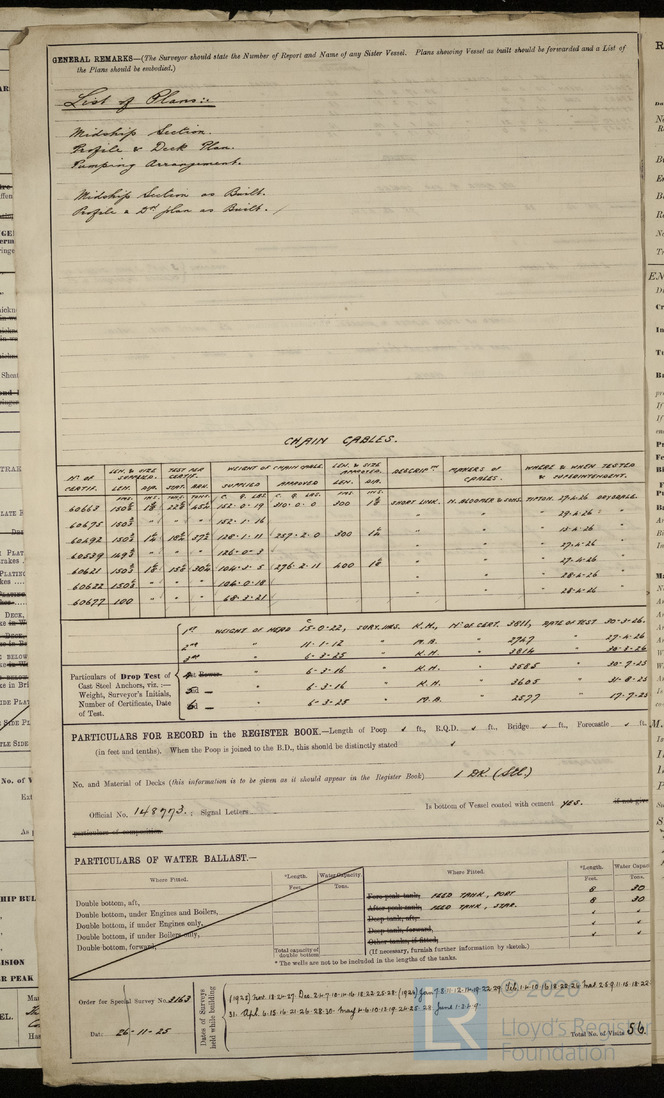 GENERAL REMARKS—(The Surveyor should state the Number of Report and Name of any Sister Vessel. Plans shewing Vessel as built should be forwarded and a List of
the Plans should be embodied.)
List of Plans:-
Midship Section.
Profile & Deck Plan.
Pumping Arrangement.
Midship Section as Built.
Profile & Dk plan as Built.
CHAIN CABLES.
No OF CERTIF. LEN. & SIZE SUPPLIED. TEST PER CERTIF. WEIGHT OF CHAIN CABLE LEN. & SIZE APPROVED. DESCRIPTN MAKERS OF CABLES. WHERE & WHEN TESTED & SUPERINTENDENT.
LEN. DIA. STAT. BRK. SUPPLIED APPROVED LEN. DIA.
FMS. INS. TONS. TONS. C. Q. LBS. C. Q. LBS. FMS. INS.
60663 152-0-19 310-0-0 300 SHORT LINK. N. BLOOMER & SONS. TIPTON. 27-4-26
60675 " " " " 152-1-16 " " " 29-4-26 "
60492 128-1-11 257-2-0 300 " " "
60539 " " " 126-0-3 " " " 27-4-26
60621 104-3-5 276-2-11 400 " " " 27-4-26
60622 " " " 104-0-18 " " " 28-4-26
60677 100 " " " 68-3-21 " " " 28-4-26
Particulars of Drop Test of
Cast Steel Anchors, viz.:—
Weight, Surveyor's Initials,
Number of Certificate, Date
of Test.
1st WEIGHT OF HEAD 15-0-22, SURY. INS. K.H., No CERT. 3811, DATE OF TEST 30-3-26.
2nd " 11-1-12 " M.A. " 2767 " 27-4-26
3rd " 6-3-25 " K.H. " 3814 " 30-3-26
4th " 6-3-16 " K.H. " 3585 " 30-7-25
5th " 6-3-16 " K.H. " 3605 " 31-8-25
6 " 6-3-25 " M.A. " 2577 " 17-7-25
PARTICULARS FOR RECORD in the REGISTER BOOK.—Length of Poop ft., R.Q.D. ft., Bridge ft., Forecastle ft.
(in feet and tenths). When the Poop is joined to the B.D., this should be distinctly stated
No. and Material of Decks (this information is to be given as it should appear in the Register Book) 1 DK. (Stl.)
Official No. 148773.; Signal Letters Is bottom of Vessel coated with cement yes. if not give
particulars of composition
PARTICULARS OF WATER BALLAST.—
Where Fitted. *Length. Feet. Water Capacity. Tons.
Double bottom, aft,
Double bottom, under Engines and Boilers,
Double bottom, if under Engines only,
Double bottom, if under Boilers only,
Double bottom, forward,
Total capacity of double bottom
Where Fitted. *Length. Feet. Water Capaci Tons.
Fore peak tank, FEED TANK, PORT 8 30
After peak tank, FEED TANK, STAR. 8 30
Deep tank, aft,
Deep tank, forward,
Other tanks, if fitted,
(If necessary, furnish further information by sketch.)
* The wells are not to be included in the lengths of the tanks.
Order for Special Survey No. 3163
Date 26-11-25
Dates of Surveys held while building
(1925) Nov. 18-24-27. Dec. 2-4-7-10-14-16-18-22-25-28. (1926) Jan. 7-8-11-12-14-19-22-29. Feb. 1-4-10-16-18-22-26 Mar. 2-5-9-11-15-18-22
31. Apl. 6-15-16-21-26-28-30. May 4-6-10-13-19-24-25-28. June 1-2-4-9.
Total No. of Visits 56.
© 2020
LR
Lloyd's Register
Foundation